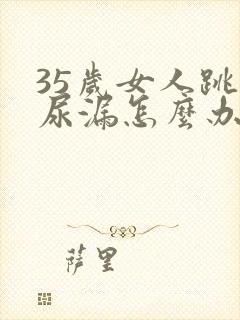 35歲女人跳
尿漏怎麼办
萨里